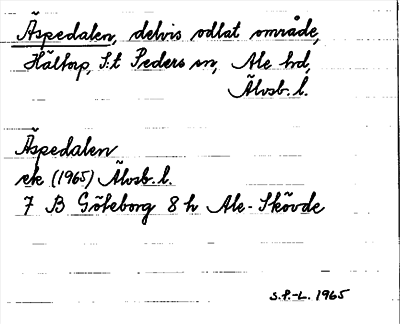 Äspedalen, delvis odlat område,
Hältorp, S:t Peders sn, Ale hd,
Älvsb. l.
Äspedalen
ek (1965) Älvsb. l.
7 B Göteborg 8 h Ale-Skövde
S.P.-L. 1965